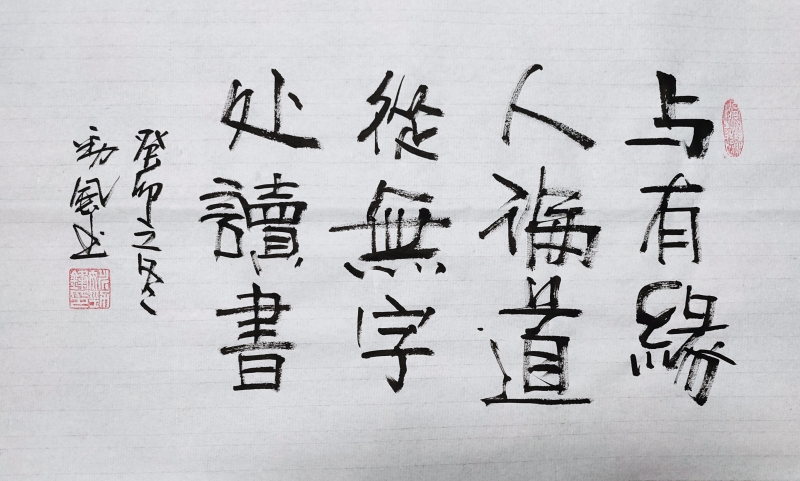 与有緣
人論道
從無字
处讀書
癸卯之冬
勁風书